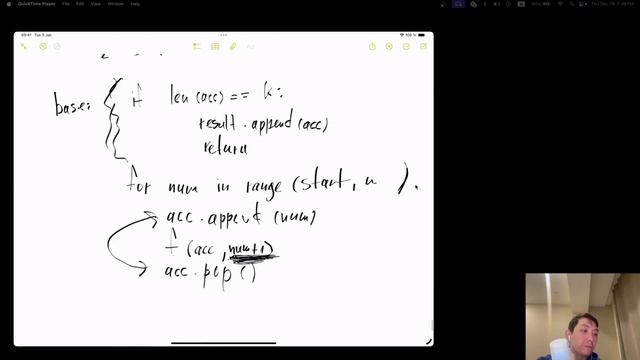 QuickTime Player File Edit View Window Help
09:41 Tue 9 Jan
100 %
base: if len(acc) == k:
result.append(acc)
return
for num in range(start, n ).
acc.append(num)
f(acc, num+1)
acc.pop()